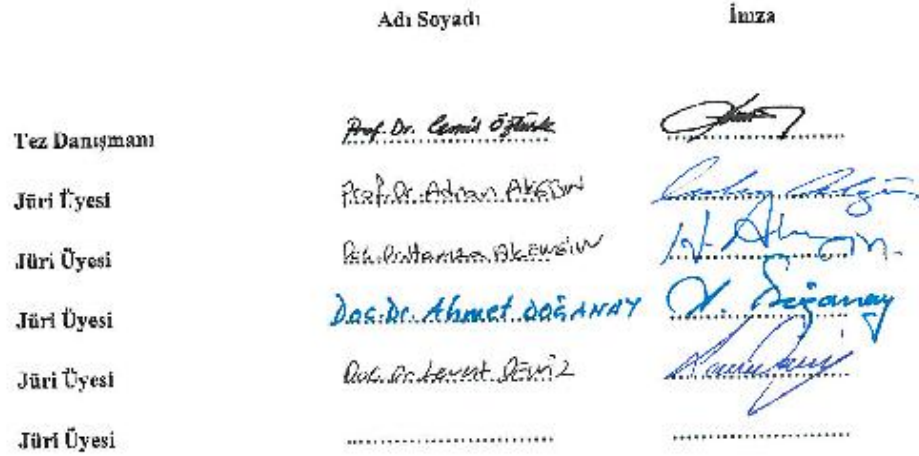 Adı Soyadı İmza
Tez Danışmanı Prof. Dr. Cemil Öztürk
Jüri Üyesi Prof. Dr. Adnan AKGÜN
Jüri Üyesi Doç. Dr. Hamza AKENGİN
Jüri Üyesi Doç. Dr. Ahmet DOĞANAY A. Doğanay
Jüri Üyesi Doç. Dr. Levent DENİZ
Jüri Üyesi